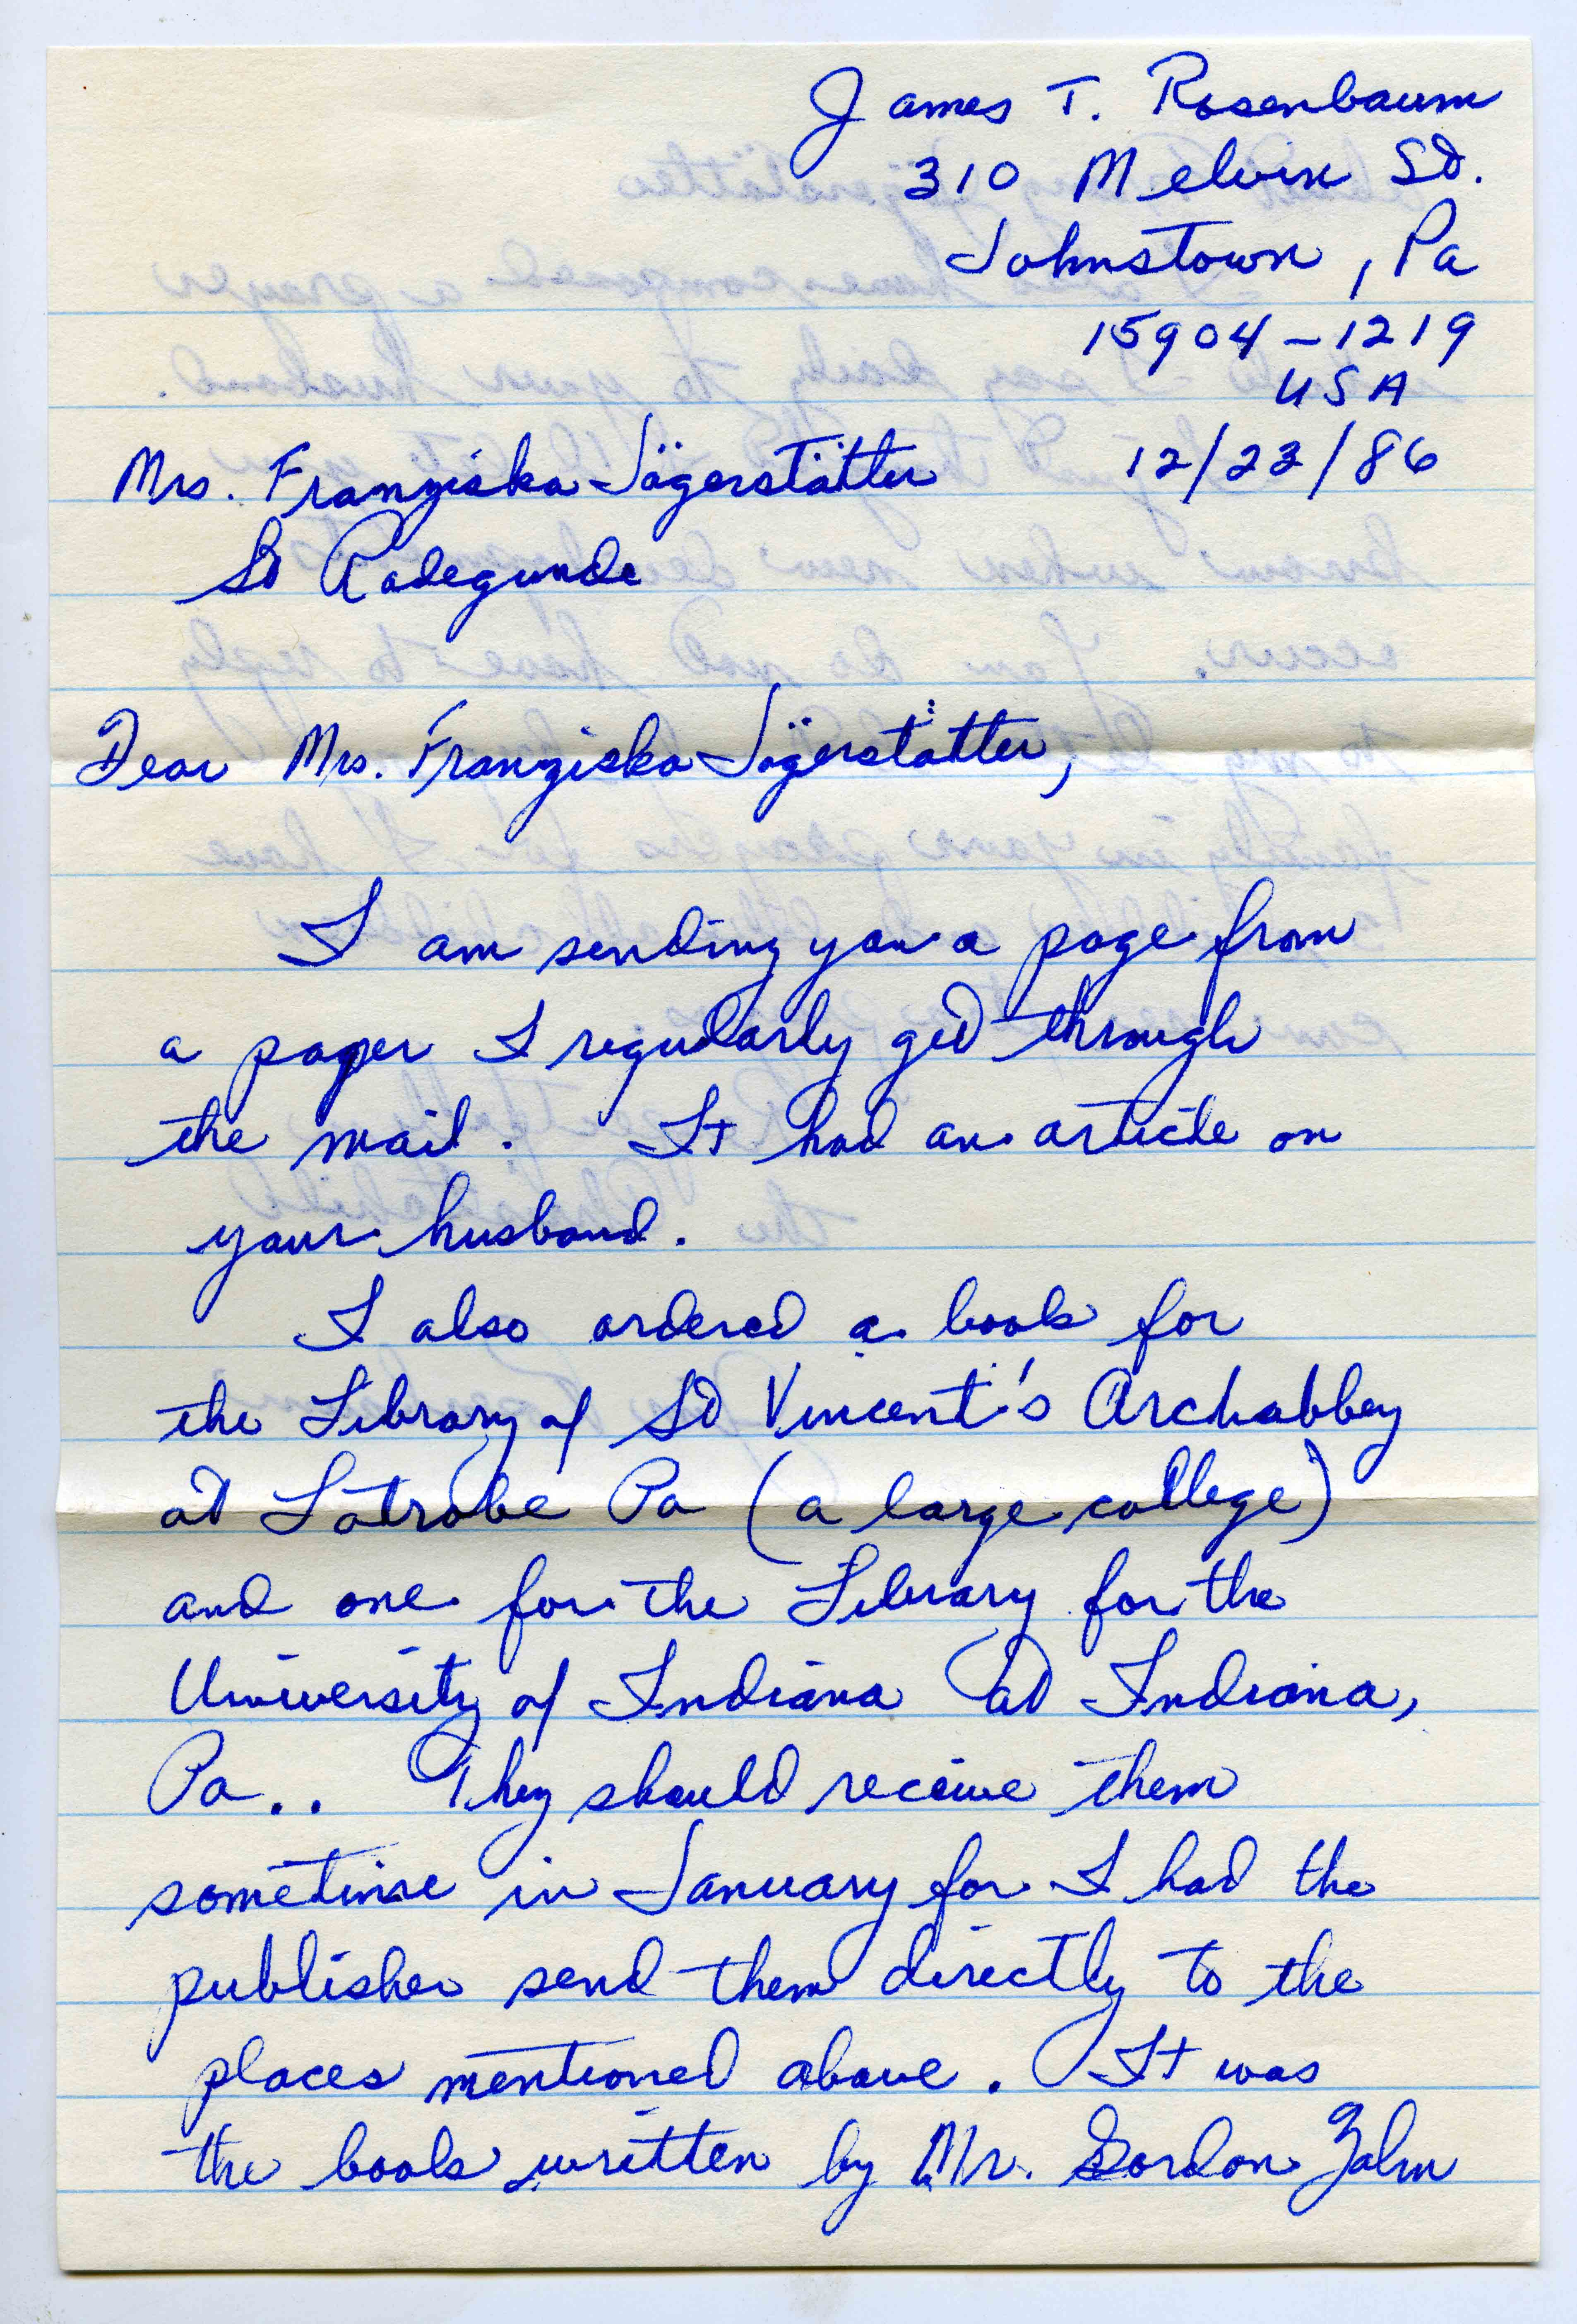 James T. Rosenbaum
310 Melvin St.
Johnstown, Pa
15904-1219
USA
12/23/86
Mrs. Franziska Jägerstätter
St Radegunde
Dear Mrs. Franziska Jägerstätter,
I am sending you a page from
a paper I regularly get through
the mail. It had an article on
your husband.
I also ordered a book for
the Library of St Vincent's Archabbey
at Latrobe Pa (a large college)
and one for the Library for the
University of Indiana at Indiana,
Pa.. They should receive them
sometime in January for I had the
publisher send them directly to the
places mentioned above. It was
the book written by Mr. Gordon Zahn